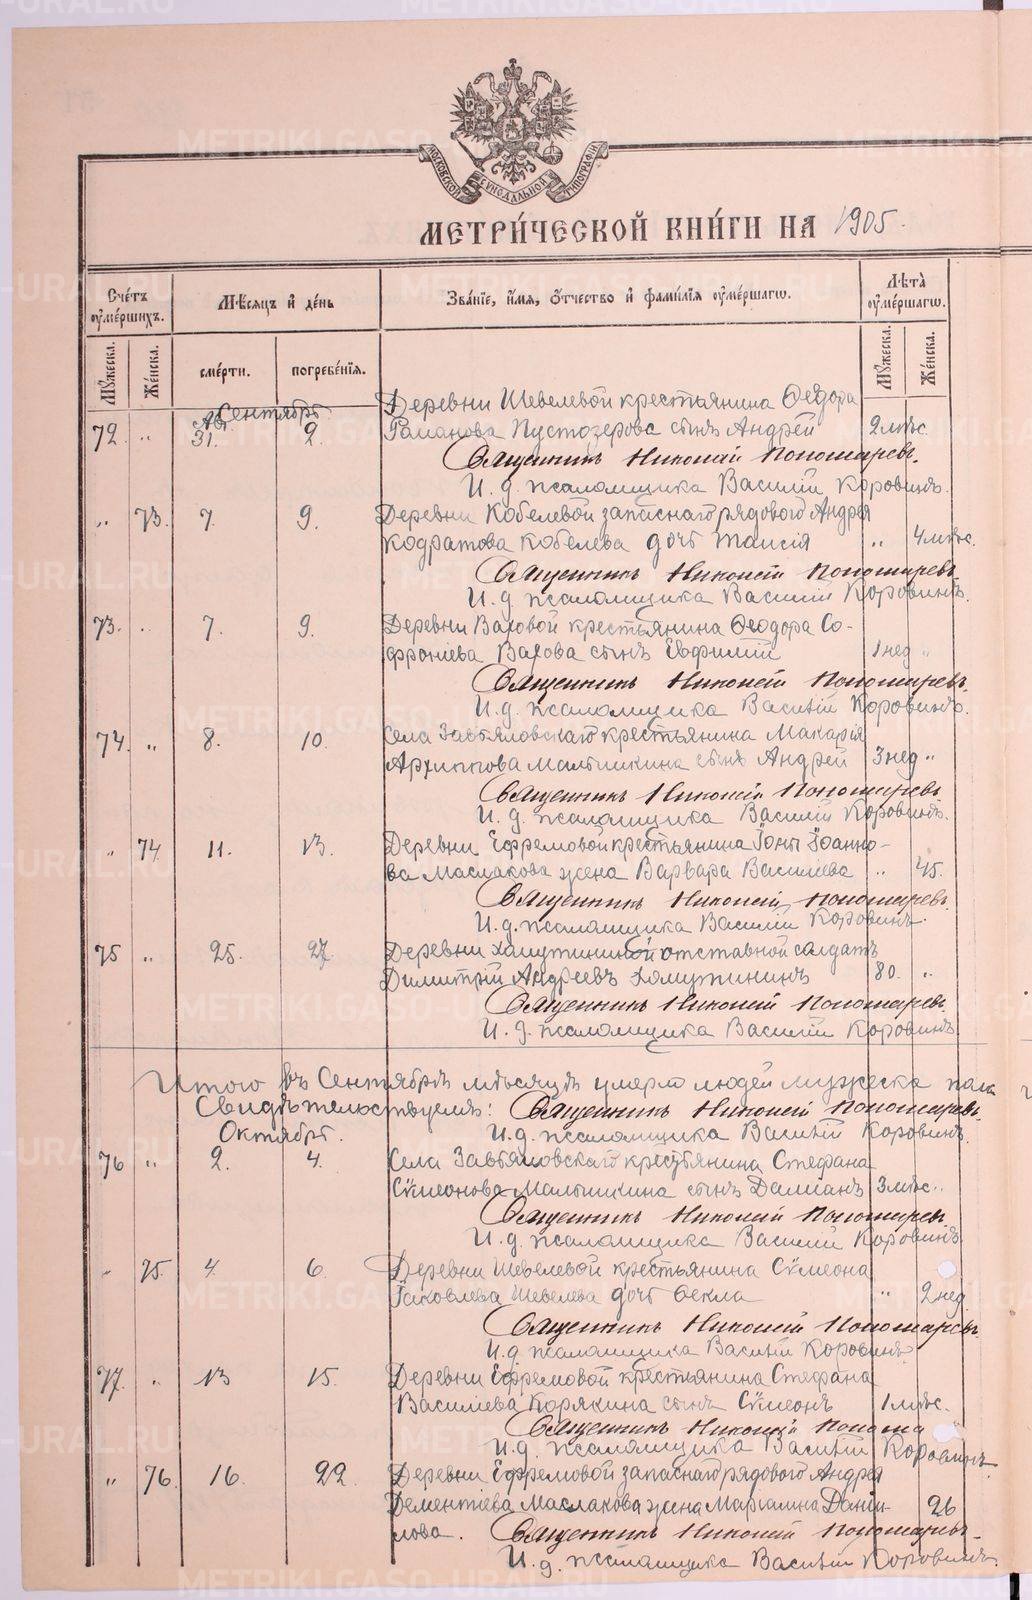 МОСКОВСКОЙ СУНОДАЛЬНОЙ ТИПОГРАФІИ
МЕТРИ́ЧЕСКОЙ КНИ́ГИ НА 1905.
Сче́тъ ᲂу҆ме́ршихъ.
Мѣ́сѧцъ и҆ де́нь
Зва́нїе, и҆́мѧ, ѻ҆́тчество и҆ фами́лїѧ ᲂу҆ме́ршагѡ.
Лѣ́та ᲂу҆ме́ршагѡ.
Мꙋ́жеска.
Же́нска.
сме́рти.
погребе́нїѧ.
Мꙋ́жеска.
Же́нска.
Сентябрь.
Деревни Шевелевой крестьянина Ѳеодора
72 „ Авг 31. 2. Романова Пустозерова сынъ Андрей 2 мѣс.
Священникъ Николай Пономаревъ.
И. д. псаломщика Василій Коровинъ.
„ 73. 7. 9. Деревни Кобелевой запаснаго рядового Андрея
Кодратова Кобелева дочь Таисія „ 4 мѣс.
Священникъ Николай Пономаревъ.
И. д. псаломщика Василій Коровинъ.
73. „ 7. 9. Деревни Ваховой крестьянина Ѳеодора Со-
фроніева Вахова сынъ Евфимій 1 нед „
Священникъ Николай Пономаревъ.
И. д. псаломщика Василій Коровинъ.
74. „ 8. 10. Села Завьяловскаго крестьянина Макарія
Архиппова Малышкина сынъ Андрей 3 нед „
Священникъ Николай Пономаревъ
И. д. псаломщика Василій Коровинъ.
„ 74 11. 13. Деревни Ефремовой крестьянина Іоны Іоанно-
ва Маслакова жена Варвара Василіева „ 45.
Священникъ Николай Пономаревъ.
И. д. псаломщика Василій Коровинъ.
75 „ 25. 27 Деревни Хомутининой отставной солдатъ
Димитрій Андреевъ Хомутининъ 80. „
Священникъ Николай Пономаревъ
И. д. псаломщика Василій Коровинъ
Итого въ Сентябрѣ мѣсяцѣ умерло людей мужеска пола
Свидѣтельствуемъ: Священникъ Николай Пономаревъ.
Октябрь. И. д. псаломщика Василій Коровинъ.
76 „ 2. 4. Села Завьяловскаго крестьянина Стефана
Сѵмеонова Малышкина сынъ Даміанъ 3 мѣс. „
Священникъ Николай Пономаревъ
И. д. псаломщика Василій Коровинъ
„ 75. 4. 6. Деревни Шевелевой крестьянина Сѵмеона
Іаковлева Шевелева дочь Ѳекла „ 2 нед
Священникъ Николай Пономаревъ.
И. д. псаломщика Василій Коровинъ.
77. „ 13 15. Деревни Ефремовой крестьянина Стефана
Василіева Корякина сынъ Сѵмеонъ 1 мѣс.
Священникъ Николай Понома
И. д. псаломщика Василій Коровинъ.
„ 76. 16. 22. Деревни Ефремовой запаснаго рядового Андрея
Дементіева Маслакова жена Маріамна Даніи- 26
лова. Священникъ Николай Пономаревъ.
И. д. псаломщика Василій Коровинъ.
METRIKI.GASO-URAL.RU